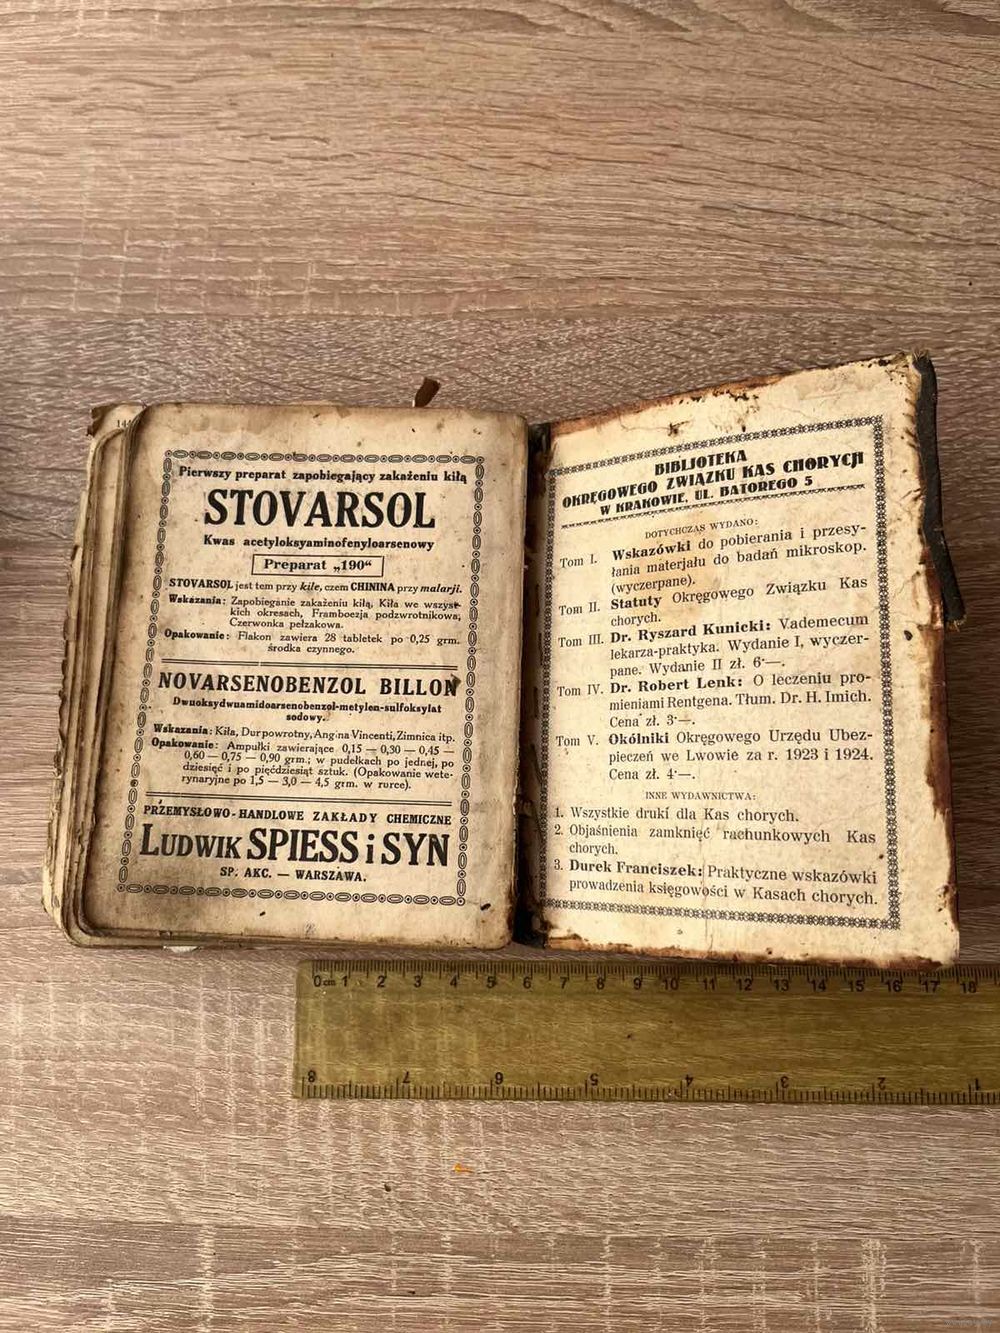 144
Pierwszy preparat zapobiegający zakażeniu kiłą
STOVARSOL
Kwas acetyloksyaminofenyloarsenowy
Preparat „190“
STOVARSOL jest tem przy kile, czem CHININA przy malarji.
Wskazania: Zapobieganie zakażeniu kiłą, Kiła we wszyst-
kich okresach, Framboezja podzwrotnikowa,
Czerwonka pełzakowa.
Opakowanie: Flakon zawiera 28 tabletek po 0,25 grm.
środka czynnego.
NOVARSENOBENZOL BILLON
Dwuoksydwuamidoarsenobenzol-metylen-sulfoksylat
sodowy.
Wskazania: Kiła, Dur powrotny, Angina Vincenti, Zimnica itp.
Opakowanie: Ampułki zawierające 0,15 — 0,30 — 0,45 —
0,60 — 0,75 — 0,90 grm.; w pudełkach po jednej, po
dziesięć i po pięćdziesiąt sztuk. (Opakowanie wete-
rynaryjne po 1,5 — 3,0 — 4,5 grm. w rurce).
PRZEMYSŁOWO-HANDLOWE ZAKŁADY CHEMICZNE
LUDWIK SPIESS i SYN
SP. AKC. — WARSZAWA.
BIBLJOTEKA
OKRĘGOWEGO ZWIĄZKU KAS CHORYCH
W KRAKOWIE, UL. BATOREGO 5
DOTYCHCZAS WYDANO:
Tom I. Wskazówki do pobierania i przesy-
łania materjału do badań mikroskop.
(wyczerpane).
Tom II. Statuty Okręgowego Związku Kas
chorych.
Tom III. Dr. Ryszard Kunicki: Vademecum
lekarza-praktyka. Wydanie I, wyczer-
pane. Wydanie II zł. 6·—.
Tom IV. Dr. Robert Lenk: O leczeniu pro-
mieniami Rentgena. Tłum. Dr. H. Imich.
Cena zł. 3·—.
Tom V. Okólniki Okręgowego Urzędu Ubez-
pieczeń we Lwowie za r. 1923 i 1924.
Cena zł. 4·—.
INNE WYDAWNICTWA:
1. Wszystkie druki dla Kas chorych.
2. Objaśnienia zamknięć rachunkowych Kas
chorych.
3. Durek Franciszek: Praktyczne wskazówki
prowadzenia księgowości w Kasach chorych.
0 cm 1 2 3 4 5 6 7 8 9 10 11 12 13 14 15 16 17 18
8 7 6 5 4 3 2 1